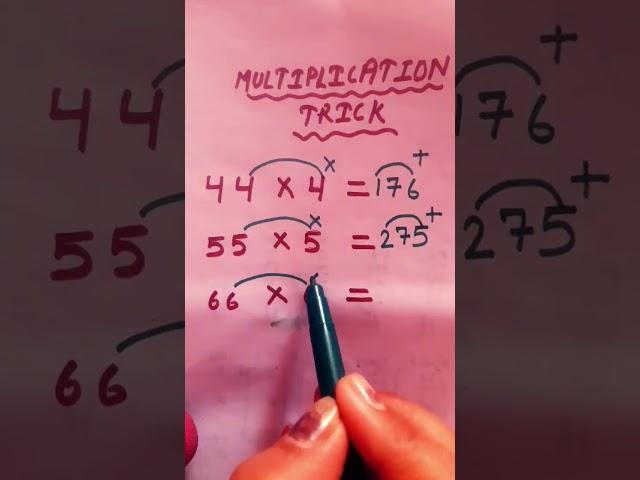 MULTIPLICATION
TRICK
44 × 4 = 176
55 × 5 = 275
66 × =